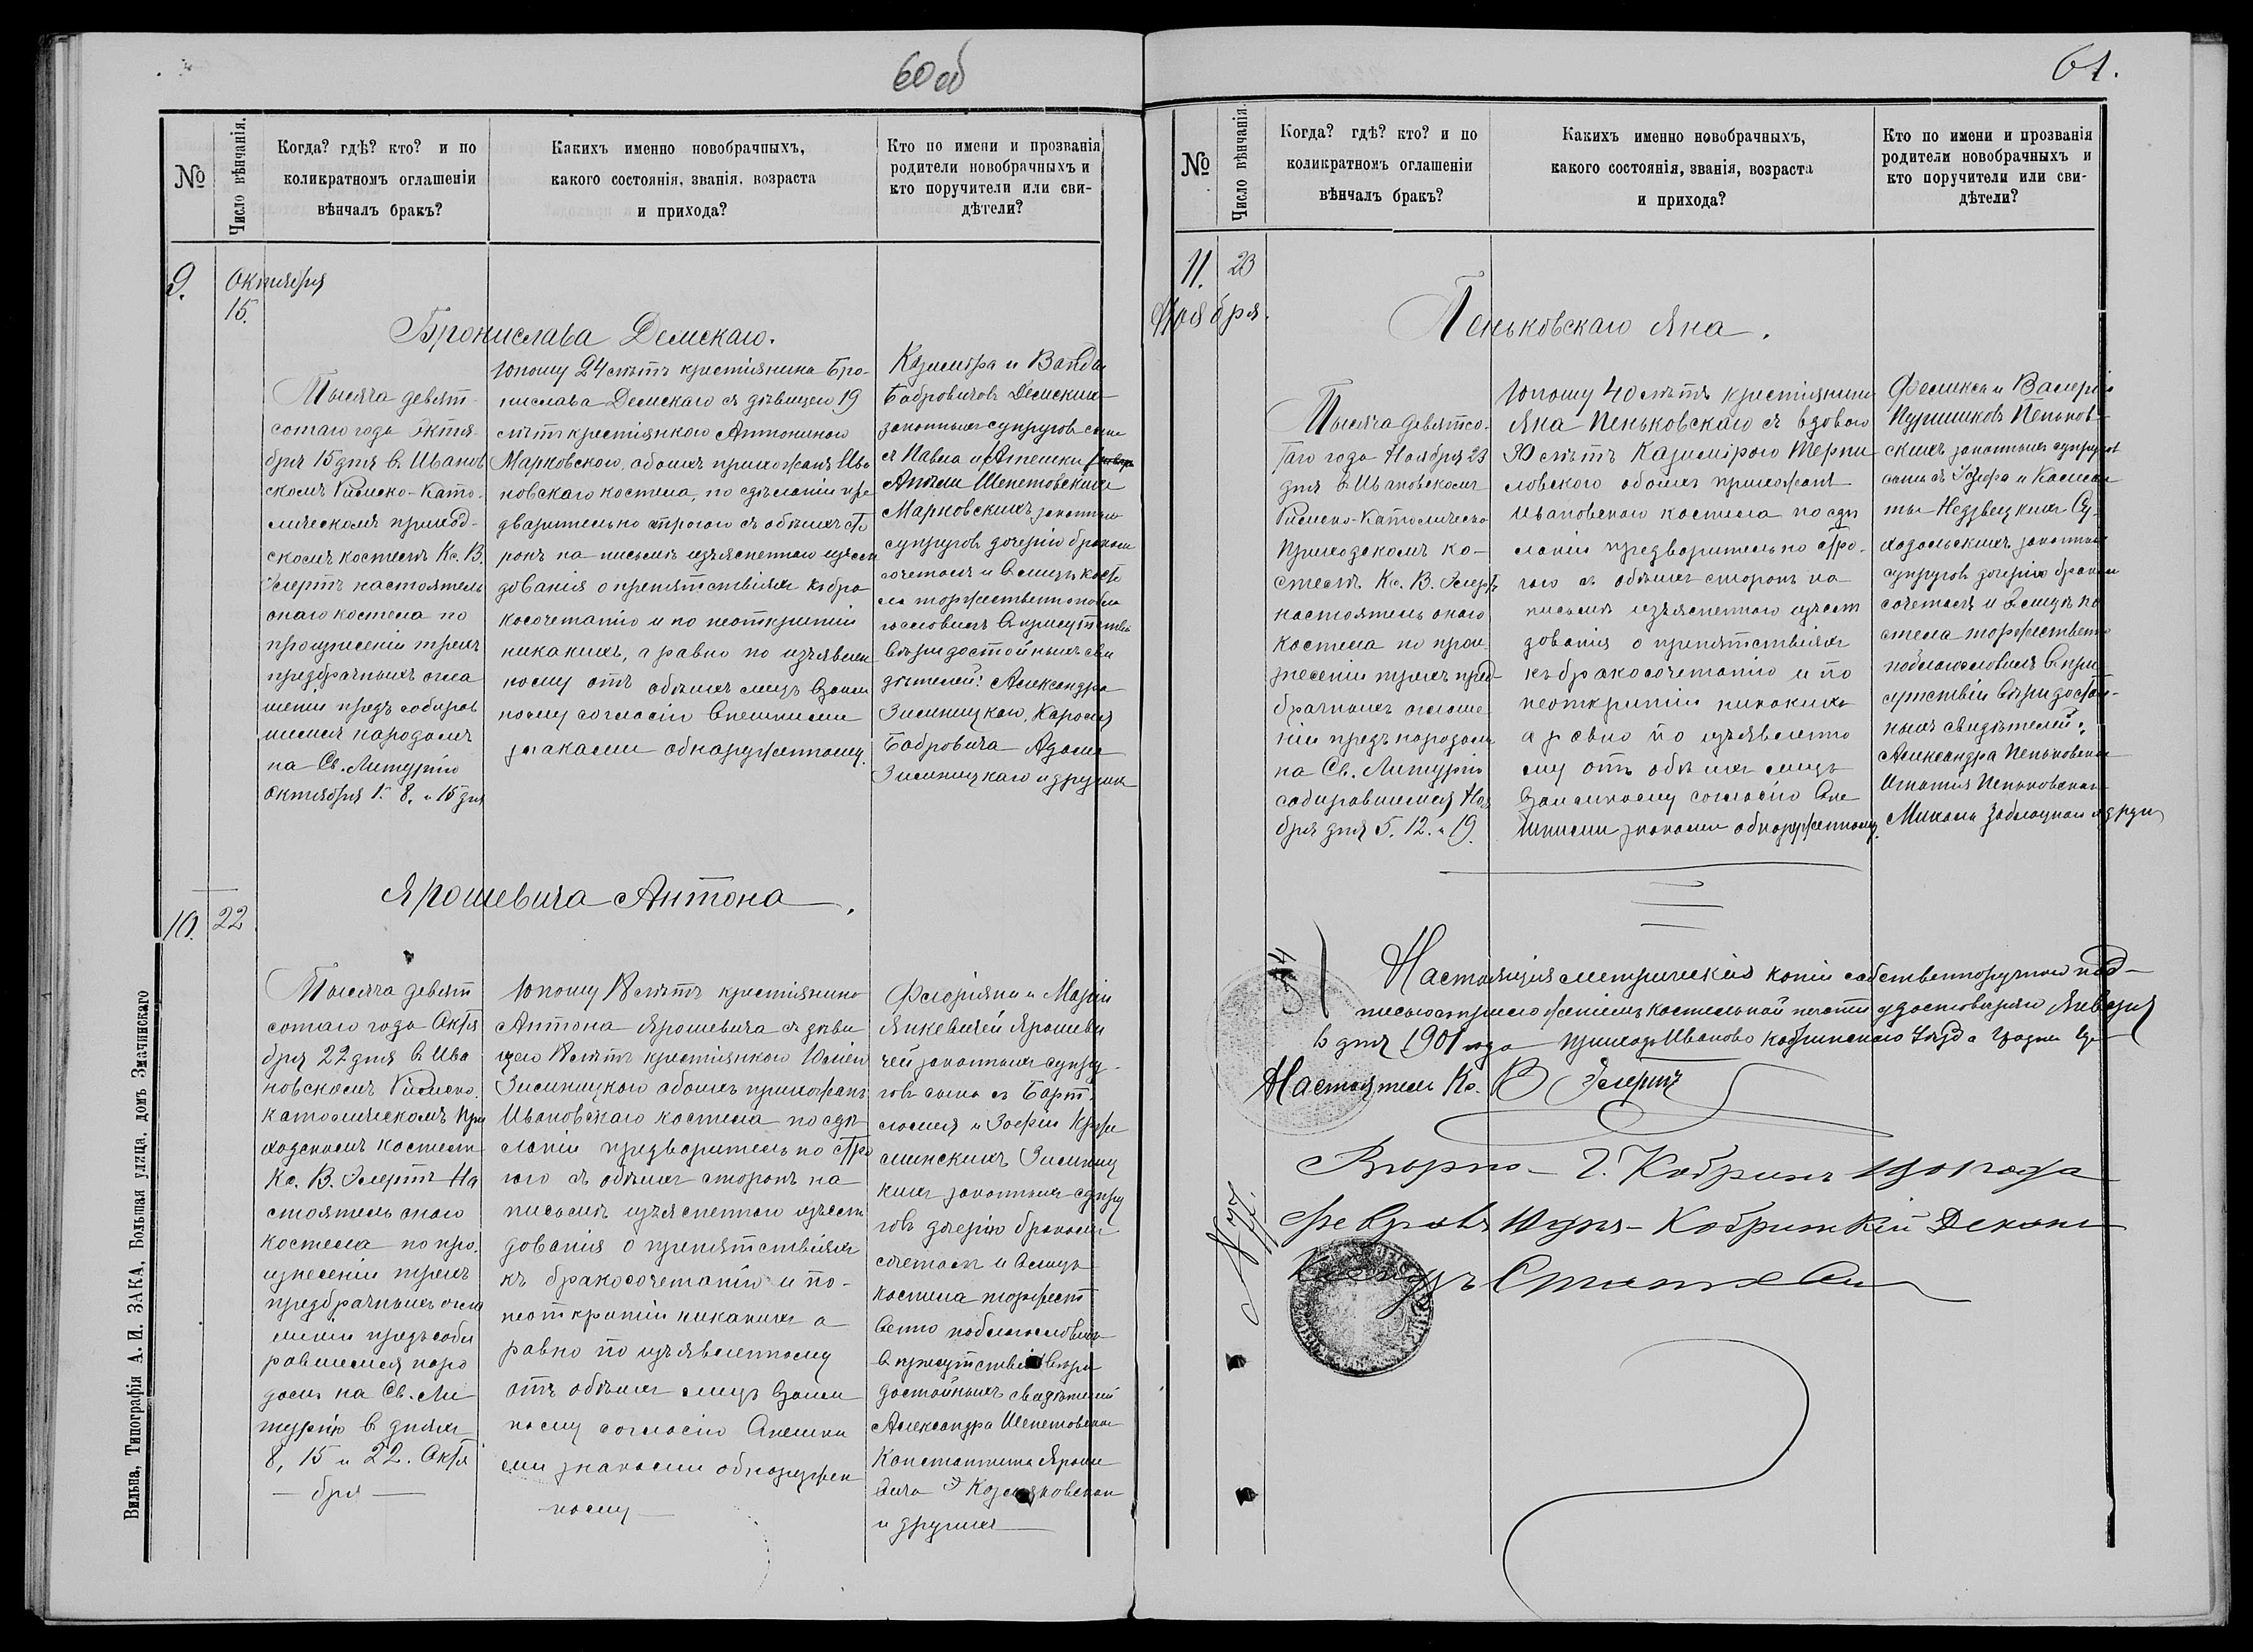 60об
№
Число вѣнчанія.
Когда? гдѣ? кто? и по
коликратномъ оглашеніи
вѣнчалъ бракъ?
Какихъ именно новобрачныхъ,
какого состоянія, званія, возраста
и прихода?
Кто по имени и прозванія
родители новобрачныхъ и
кто поручители или сви-
дѣтели?
9.
Октября
15.
Бронислава Демскаго.
Тысяча девят-
сотаго года Октя-
бря 15 дня в Иванов
скомъ Римско-Като-
лическомъ приход-
скомъ костелѣ Кс. В.
Эллертъ настоятель
онаго костела по
произнесеніи трехъ
предбрачныхъ огла
шеніи предъ собирав
шимся народомъ
на Св. Литургію
Октября 1. 8. и 15 дня
Юношу 24 лѣтъ крестіянина Бро-
нислава Демскаго съ дѣвицею 19
лѣтъ крестіянкою Антониною
Марковскою, обоихъ прихожанъ Ива
новскаго костела, по сдѣланіи пре
дварительно строгаго съ обѣихъ сто
ронъ на письмѣ изъясненнаго изслѣ
дованія о препятствіяхъ къ бра
косочетанію и по неоткрытіи
никакихъ, а равно по изъявлен
ному отъ обѣихъ лицъ взаим
ному согласію внешними
знаками обнаруженному.
Казиміра и Ванды
Бобровичовъ Демскихъ
законныхъ супруговъ сына
съ Павла и Агнешки
Анели Шепетовскихъ
Марковскихъ законныхъ
супруговъ дочерію бракомъ
сочеталъ и в лицѣ косте
ла торжественно побла
гословилъ в присутствіи
вѣридостойныхъ сви
дѣтелей: Александра
Зилиницкаго, Кароля
Бобровича Адама
Зилиницкаго и другихъ
10.
22
Ярошевича Антона.
Тысяча девят
сотаго года Октя
бря 22 дня в Ива
новскомъ Римско
католическомъ При
ходскомъ костелѣ
Кс. В. Эллертъ На
стоятель онаго
костела по про-
изнесеніи трехъ
предбрачныхъ огла
шеніи предъ соби
равшимся наро
домъ на Св. Ли
тургію в дняхъ
8, 15 и 22. Октя
— бря —
Юношу 18 лѣтъ крестіянина
Антона Ярошевича съ дѣви
цею 18 лѣтъ крестіянкою Юліею
Зилиницкою обоихъ прихожанъ
Ивановскаго костела по сдѣ
ланіи предварительно стро
гаго съ обѣихъ сторонъ на
письмѣ изъясненнаго изслѣ
дованія о препятствіяхъ
къ бракосочетанію и по-
неоткрытіи никакихъ а
равно по изъявленному
отъ обѣихъ лицъ взаим
ному согласію внешни
ми знаками обнаружен
ному
Флоріяна и Маріи
Янкевичей Ярошеви
чей законныхъ супру-
говъ сына съ Барт
ломея и Зофіи
Зилиниц
кихъ законныхъ супру
говъ дочерію бракомъ
сочеталъ и в лицѣ
костела торжест
венно поблагословилъ
в присутствіи вѣри
достойныхъ свидѣтелей
Александра Шепетовскаго
Константина Яроше
вича
и другихъ
Вильна, Типографія А. И. ЗАКА, Большая улица, домъ Змачинскаго
61.
№
Число вѣнчанія.
Когда? гдѣ? кто? и по
коликратномъ оглашеніи
вѣнчалъ бракъ?
Какихъ именно новобрачныхъ,
какого состоянія, званія, возраста
и прихода?
Кто по имени и прозванія
родители новобрачныхъ и
кто поручители или сви-
дѣтели?
11.
23
Ноября.
Пеньковскаго Яна.
Тысяча девятсо-
таго года Ноября 23
дня в Ивановскомъ
Римско-Католическо
Приходскомъ ко-
стелѣ Кс. В. Эллертъ
настоятель онаго
костела по прои
знесеніи трехъ пред-
брачныхъ оглаше
ніи предъ народомъ
на Св. Литургію
собиравшимся Ноя
бря дня 5. 12. и 19.
Юношу 40 лѣтъ крестіянина
Яна Пеньковскаго съ вдовою
30 лѣтъ Казимірою Терпи
ловскою обоихъ прихожанъ
Ивановскаго костела по сдѣ
ланіи предварительно стро-
гаго съ обѣихъ сторонъ на
письмѣ изъясненнаго изслѣ
дованія о препятствіяхъ
къ бракосочетанію и по
неоткрытіи никакихъ
а равно по изъявленно
му отъ обѣихъ лицъ
взаимному согласію вне
шними знаками обнаруженному.
Феликса и Валеріи
Пеньков-
скихъ законныхъ супруговъ
сына съ Іозефа и
Недзвецкихъ Су-
ходольскихъ законныхъ
супруговъ дочерію бракомъ
сочеталъ и в лицѣ ко
стела торжественно
поблагословилъ в при
сутствіи вѣридостой-
ныхъ свидѣтелей:
Александра Пеньковскаго
Игнатія Пеньковскаго
Михала Заблоцкаго и други
Настоящія метрическія копіи собственноручною под-
писью с приложеніемъ костельной печати удостоверяю Января
дня 1901 года приходъ Иваново Кобринскаго Уѣзда Гродн. Гу
Настоятель Кс. В. Эллертъ
№ 77.
Вѣрно — Г. Кобринъ 1901 года
Февраля дня — Кобринскій Деканъ
Ксендзъ